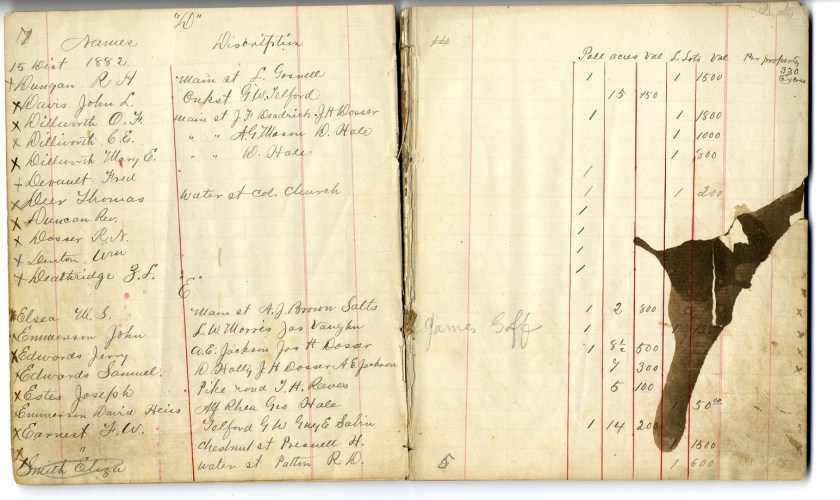 7 "D"
Names Discription
15 Dist 1882
Dungan R H Main st L. Gosnell
Davis John L. G W Telford
Dillworth O. F. Main st J. F. Deadrick J H Dosser
Dillworth C. E. " " A G Mason D. Hale
Dillworth Mary E. " " D. Hale
Devault Fred
Deer Thomas Water st Col. Church
Duncan Rev.
Dosser R. N.
Denton Wm
Deathridge Z. L.
"E"
Elsea W. S. Main st A. J. Brown Salts
Emmerson John L. W. Morris Jas Vaughn
Edwards Jerry A. E. Jackson Jas H Dosser
Edwards Samuel D. J H Dosser A E Jackson
Estes Joseph Pike road T. H. Reeves
Emmerson David Heirs Rhea Geo Hale
Earnest F. W. Telford G W E Sabin
" Chestnut st Presnell H.
Smith Eliza Water st Patton R. D.
Poll acres Val L. Lots Val property
1 1 1500 320
15 150
1 1 1800
1 1000
1 800
1
1 1 200
1
1
1
1
1 2 800
James Goff 1 1
1 8½ 500
7 300
5 100
50 00
1 14 200
1500
5 1 600